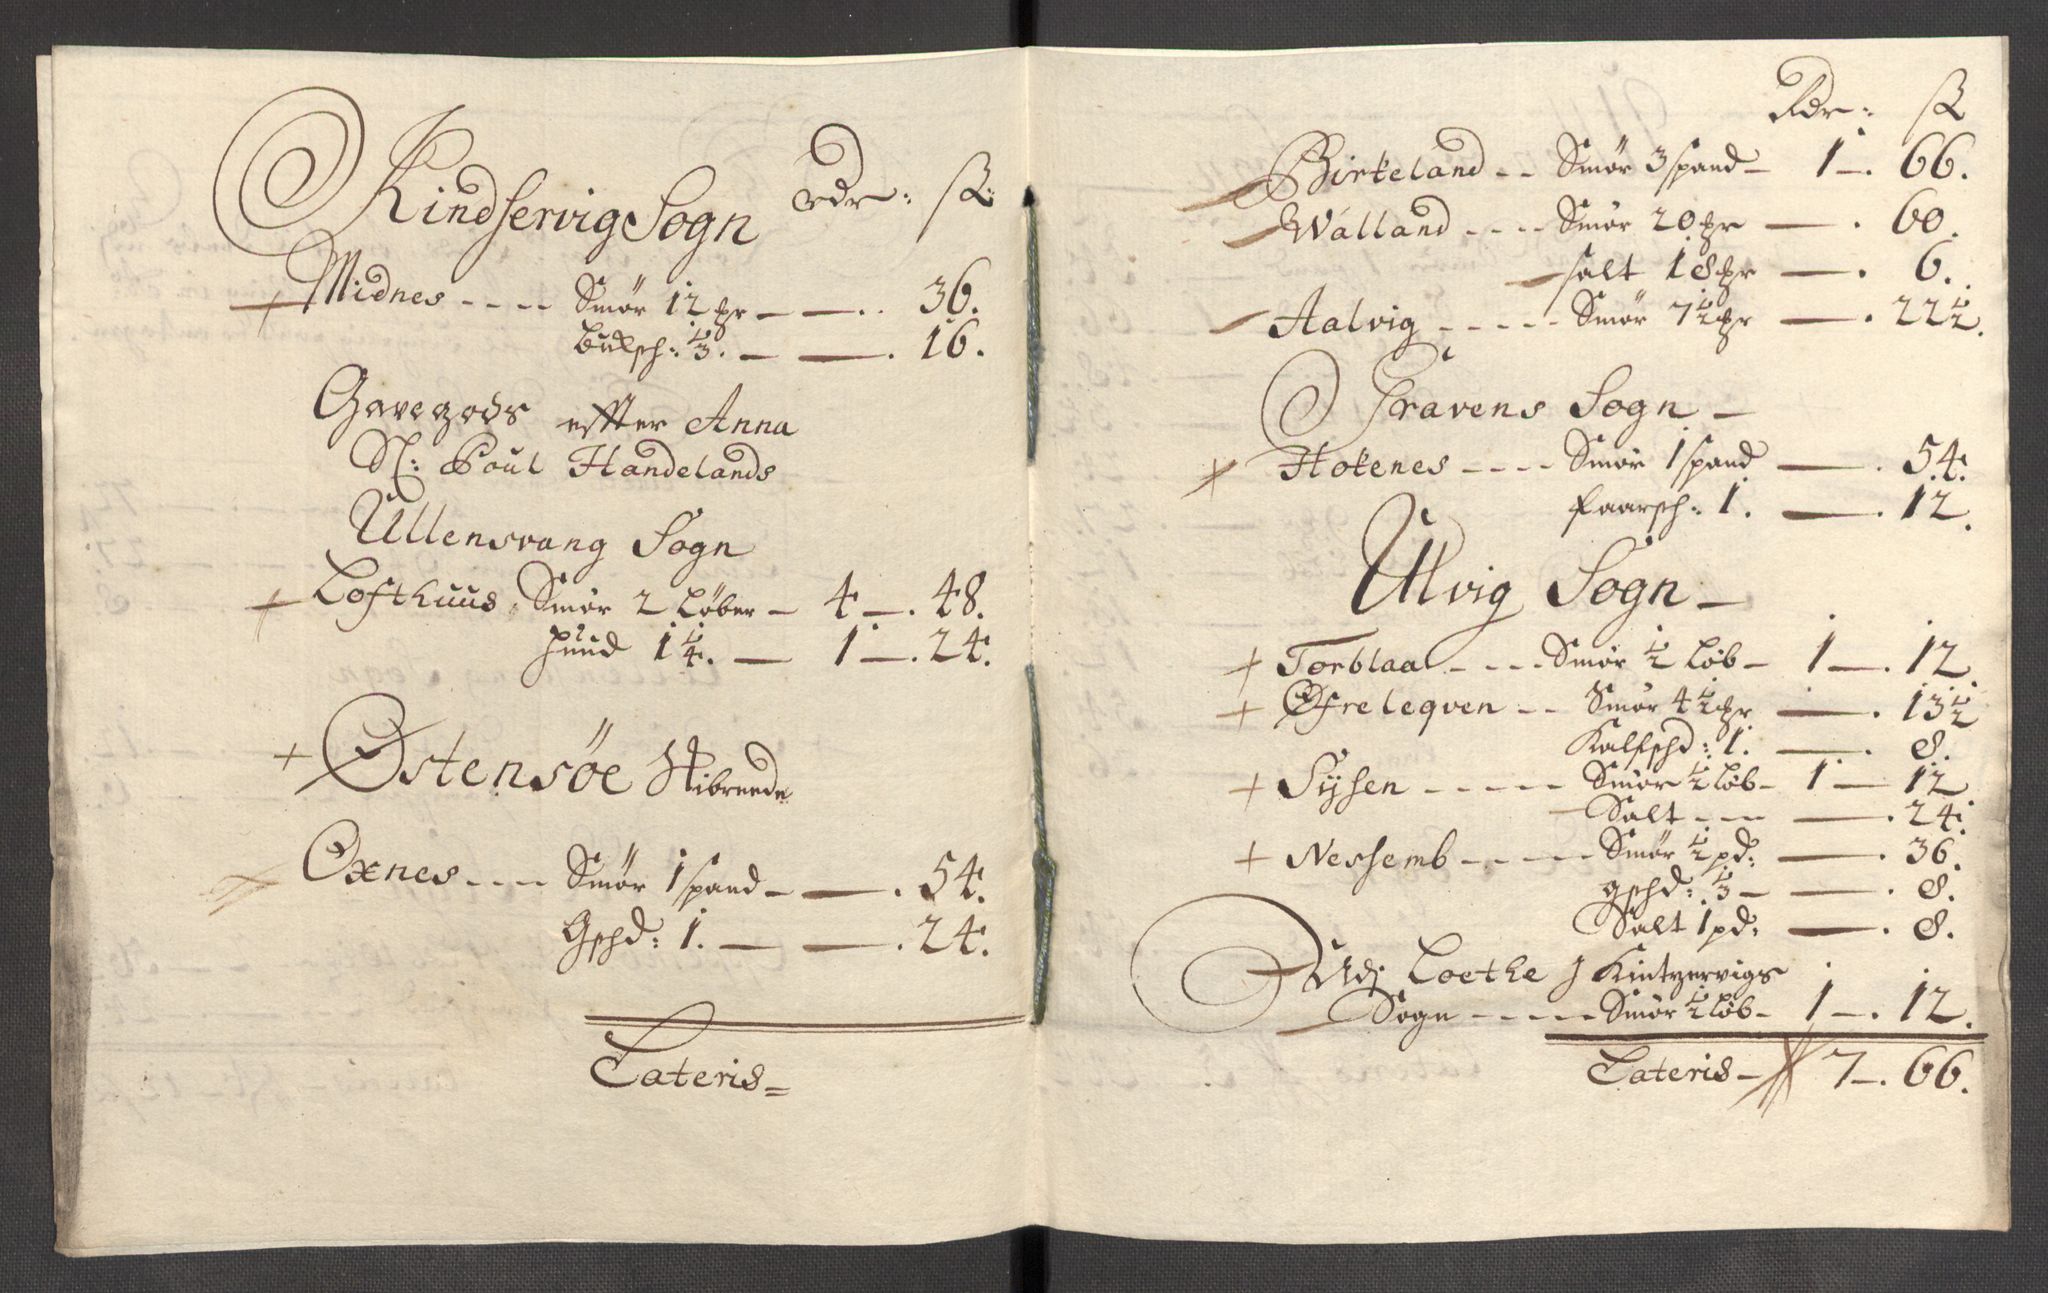 Kindservig Sogn Rdr: ß:
Midnes - - - - Smør 12 pr - — . . 36.
Buxsch: 1/3. - — . 16.
Gavegods effter Anna
Sl: Poul Handelands
Ullensvang Sogn
Lofthuus Smør 2 Løber - 4 - . 48.
huud 1 1/4. - — 1 - . 24.
Østensøe Schibreede
Oxnes - - - - Smør 1 spand - — . 54.
Gschd: 1. - — . 24.
Lateris =
Rdr: ß
Birkeland - - Smør 3 spand - 1 - . 66.
Walland - - - - Smør 20 pr — . 60.
salt 18 pr — . 6.
Aalvig - - - - - Smør 7 1/2 pr — . 22 1/2.
Gravens Sogn -
Hokenes - - - - Smør 1 spand — . 54.
faarsch: 1. — . 12.
Ulvig Sogn -
Torblaa - - - - Smør 1/2 Løb - 1 - . 12
Øfreleqven - - Smør 4 1/2 pr — . 13 1/2
Kalfschd: 1. — . 8.
Sysen - - - - - Smør 1/2 Løb - 1 - 12
Salt - - - — . 24.
Nessemb - - - - - Smør 1/2 pd: — . 36.
gschd: 1/3 - — . 8.
Salt 1 pd: — . 8.
Udj Loethe J Kintzervigs
Sogn - - - - - Smør 1/2 Løb - 1 - . 12.
Lateris - 7 - . 66.